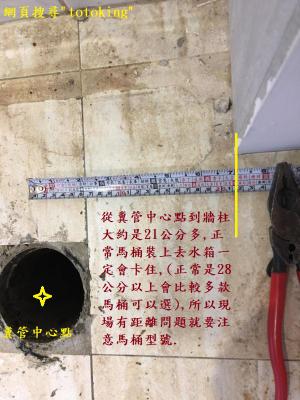 網頁搜尋"totoking"
從糞管中心點到牆柱
大約是21公分多,正
常馬桶裝上去水箱一
定會卡住,(正常是28
公分以上會比較多款
馬桶可以選),所以現
場有距離問題就要注
意馬桶型號.
糞管中心點